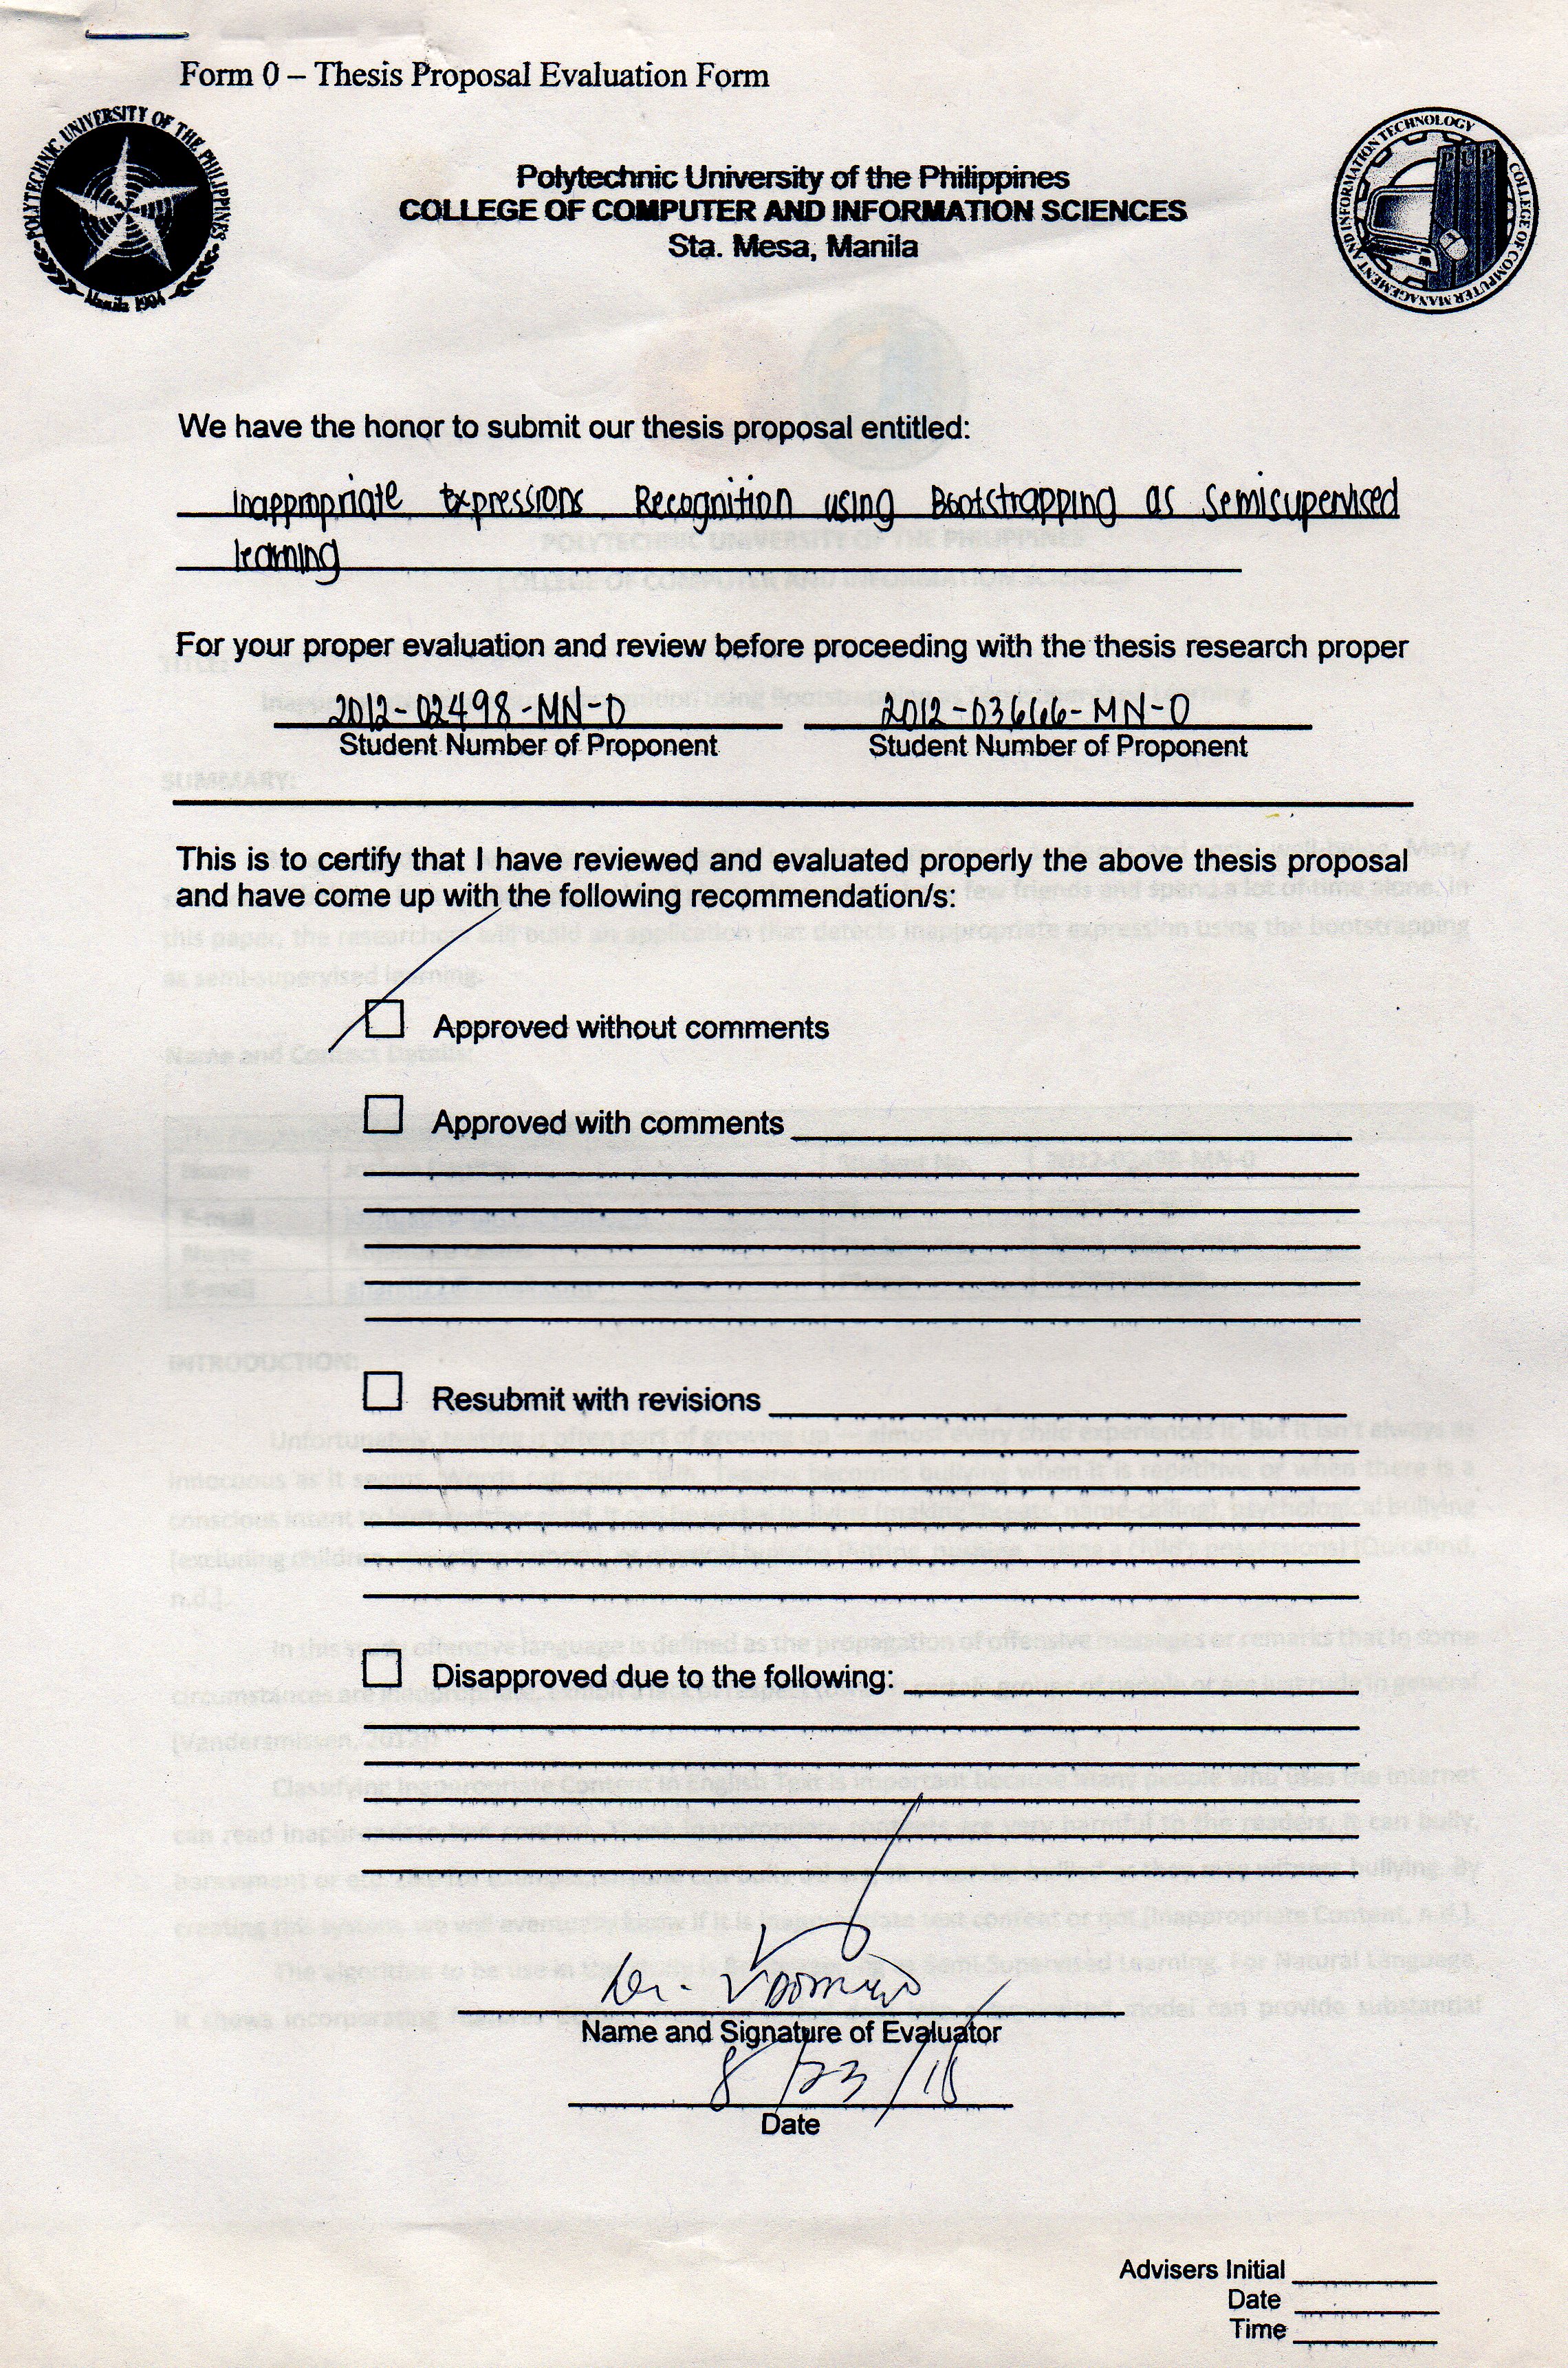 Form 0 – Thesis Proposal Evaluation Form
POLYTECHNIC UNIVERSITY OF THE PHILIPPINES
Manila 1904
COLLEGE OF COMPUTER MANAGEMENT AND INFORMATION TECHNOLOGY
PUP
Polytechnic University of the Philippines
COLLEGE OF COMPUTER AND INFORMATION SCIENCES
Sta. Mesa, Manila
We have the honor to submit our thesis proposal entitled:
Inappropriate Expressions Recognition using Bootstrapping as Semisupervised
learning
For your proper evaluation and review before proceeding with the thesis research proper
2012-02498-MN-0 2012-03666-MN-0
Student Number of Proponent Student Number of Proponent
This is to certify that I have reviewed and evaluated properly the above thesis proposal
and have come up with the following recommendation/s:
Approved without comments
Approved with comments
Resubmit with revisions
Disapproved due to the following:
Name and Signature of Evaluator
8/23/15
Date
Advisers Initial
Date
Time